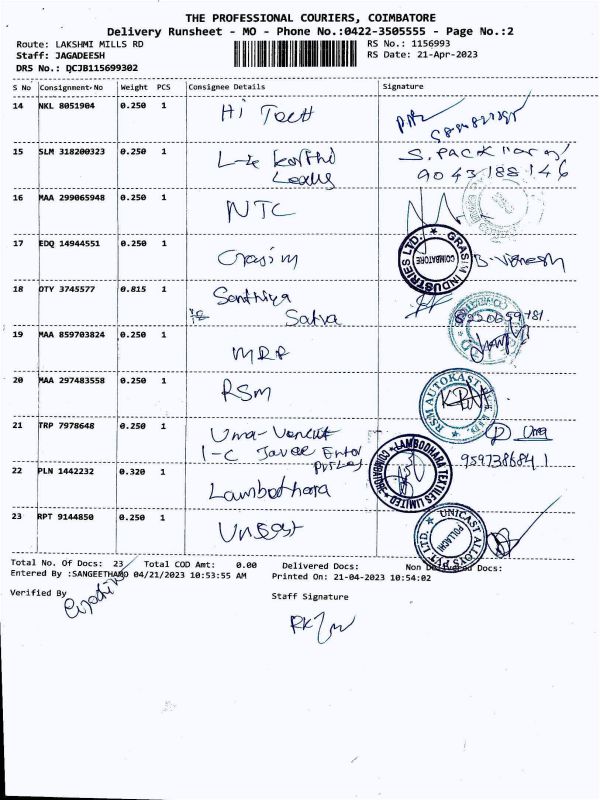 THE PROFESSIONAL COURIERS, COIMBATORE
Delivery Runsheet - MO - Phone No.:0422-3505555 - Page No.:2
Route: LAKSHMI MILLS RD
RS No.: 1156993
Staff: JAGADEESH
RS Date: 21-Apr-2023
DRS No.: QCJB115699302
S No Consignment-No Weight PCS Consignee Details Signature
14 NKL 8051904 0.250 1 Hi Tech
15 SLM 318200323 0.250 1 S.PACK
9043188146
16 MAA 299065948 0.250 1 NTC
17 EDQ 14944551 0.250 1 Grasim
GRASIM INDUSTRIES LTD. COIMBATORE
18 OTY 3745577 0.815 1 Santhiya
Satva
19 MAA 859703824 0.250 1 MRF
20 MAA 297483558 0.250 1 RSM
RSM AUTOKAST
21 TRP 7978648 0.250 1 Uma
9597386841
22 PLN 1442232 0.320 1 Lambodhara
LAMBODHARA TEXTILES LIMITED COIMBATORE
23 RPT 9144850 0.250 1
UNICAST ALLOYS PVT. LTD. POLLACHI
Total No. Of Docs: 23 Total COD Amt: 0.00 Delivered Docs: Non Delivered Docs:
Entered By :SANGEETHAMO 04/21/2023 10:53:55 AM Printed On: 21-04-2023 10:54:02
Verified By
Staff Signature